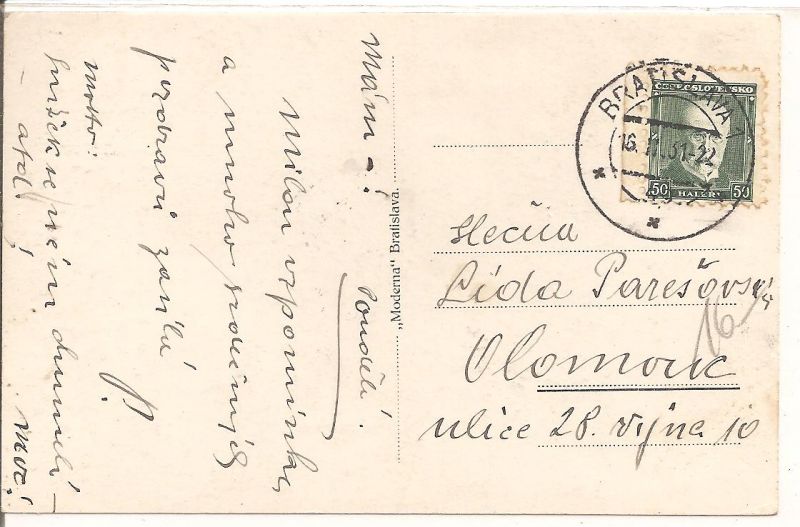 Mám - !
Pondělí.
Milou vzpomínku,
a mnoho srdečných
pozdravů zasílá
motto:
atd!
moc!
„Moderna" Bratislava.
BRATISLAVA 1
16. XI. 31-22
ČESKOSLOVENSKO
50 HALÉŘŮ 50
Slečna
Lída Parešovská
Olomouc
ulice 28. října 10
16